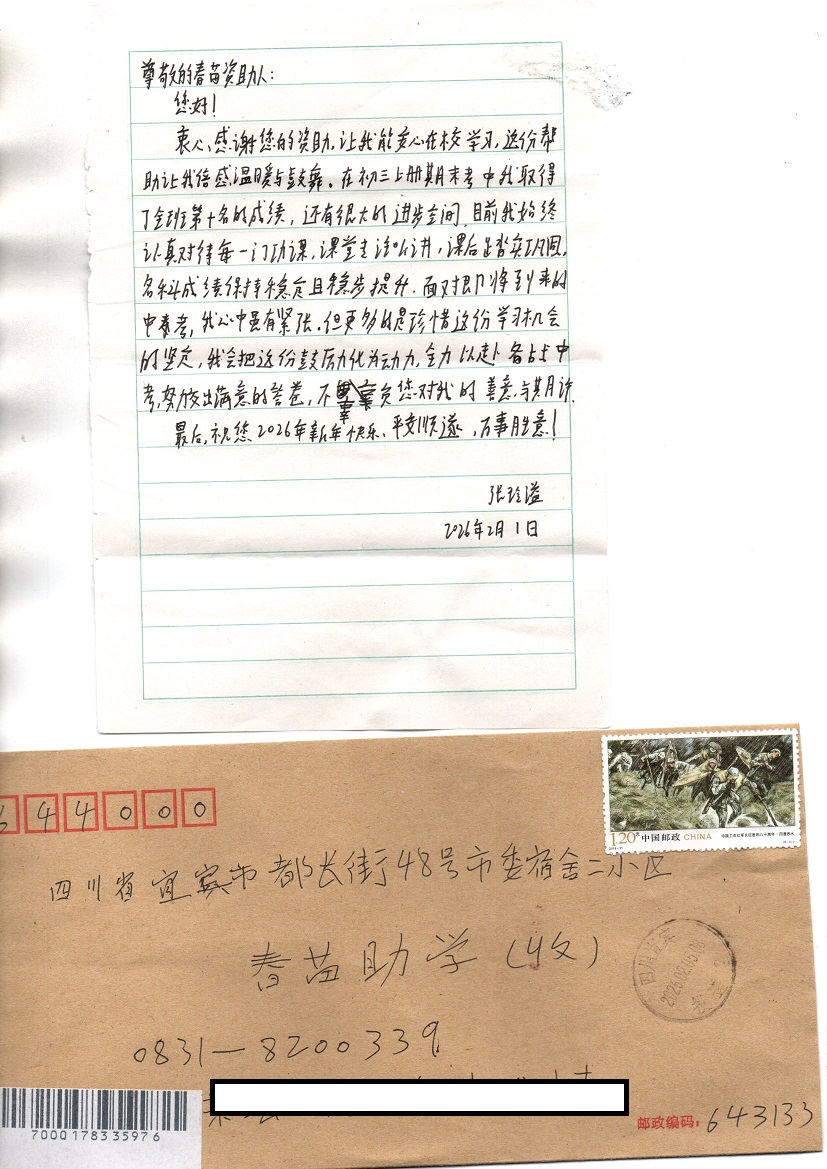 尊敬的春苗资助人：
您好！
衷心感谢您的资助，让我能安心在校学习，这份帮
助让我倍感温暖与鼓舞。在初三上册期末考中我取得
了全班第十名的成绩，还有很大的进步空间，目前我始终
认真对待每一门功课，课堂专注听讲，课后踏实巩固，
各科成绩保持稳定且稳步提升。面对即将到来的
中考，我心中虽有紧张，但更多的是珍惜这份学习机会
的坚定，我会把这份鼓励化为动力，全力以赴备战中
考，努力交出满意的答卷，不辜负您对我的善意与期许。
最后，祝您2026年新年快乐、平安顺遂，万事胜意！
张玲溢
2026年2月1日
644000
1.20元 中国邮政 CHINA
四川省宜宾市都长街48号市委宿舍二小区
春苗助学（收）
0831-8200339
7000178335976
邮政编码：643133